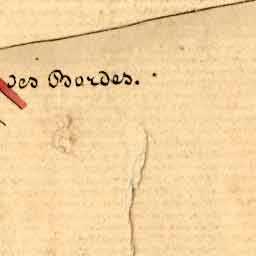 des Bordes.